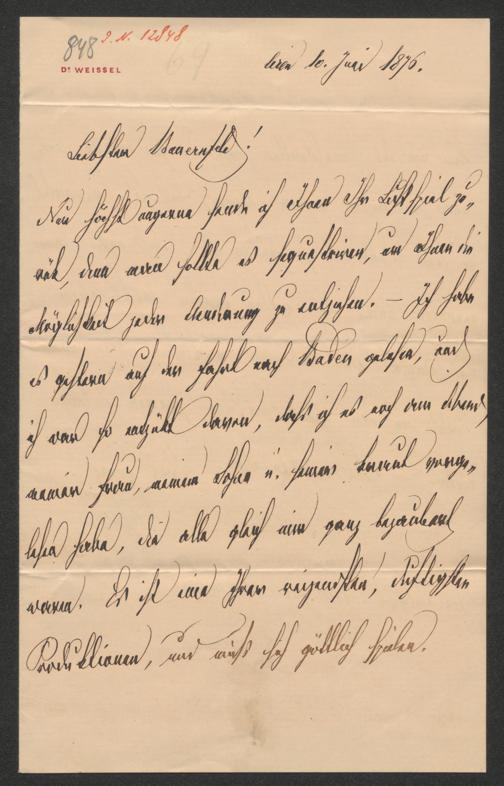 848 I. N. 12848
Dr WEISSEL
Wien 10. Juni 1876.
Liebster Bauernfeld!
Nur höchst ungerne sende ich Ihnen Ihr Lustspiel zu-
rük, denn man sollte es sequestriren, um Ihnen die
Möglichkeit jeder Aenderung zu entziehen. – Ich habe
es gestern auf der Fahrt nach Baden gelesen, und
ich war so entzükt davon, daß ich es noch am Abend
meiner Frau, meinem Sohne u. seiner Braut vorge-
lesen habe, die alle gleich mir ganz bezaubert
waren. Es ist eine Ihrer reizendsten, duftigsten
Produktionen, und muß sich göttlich spielen.